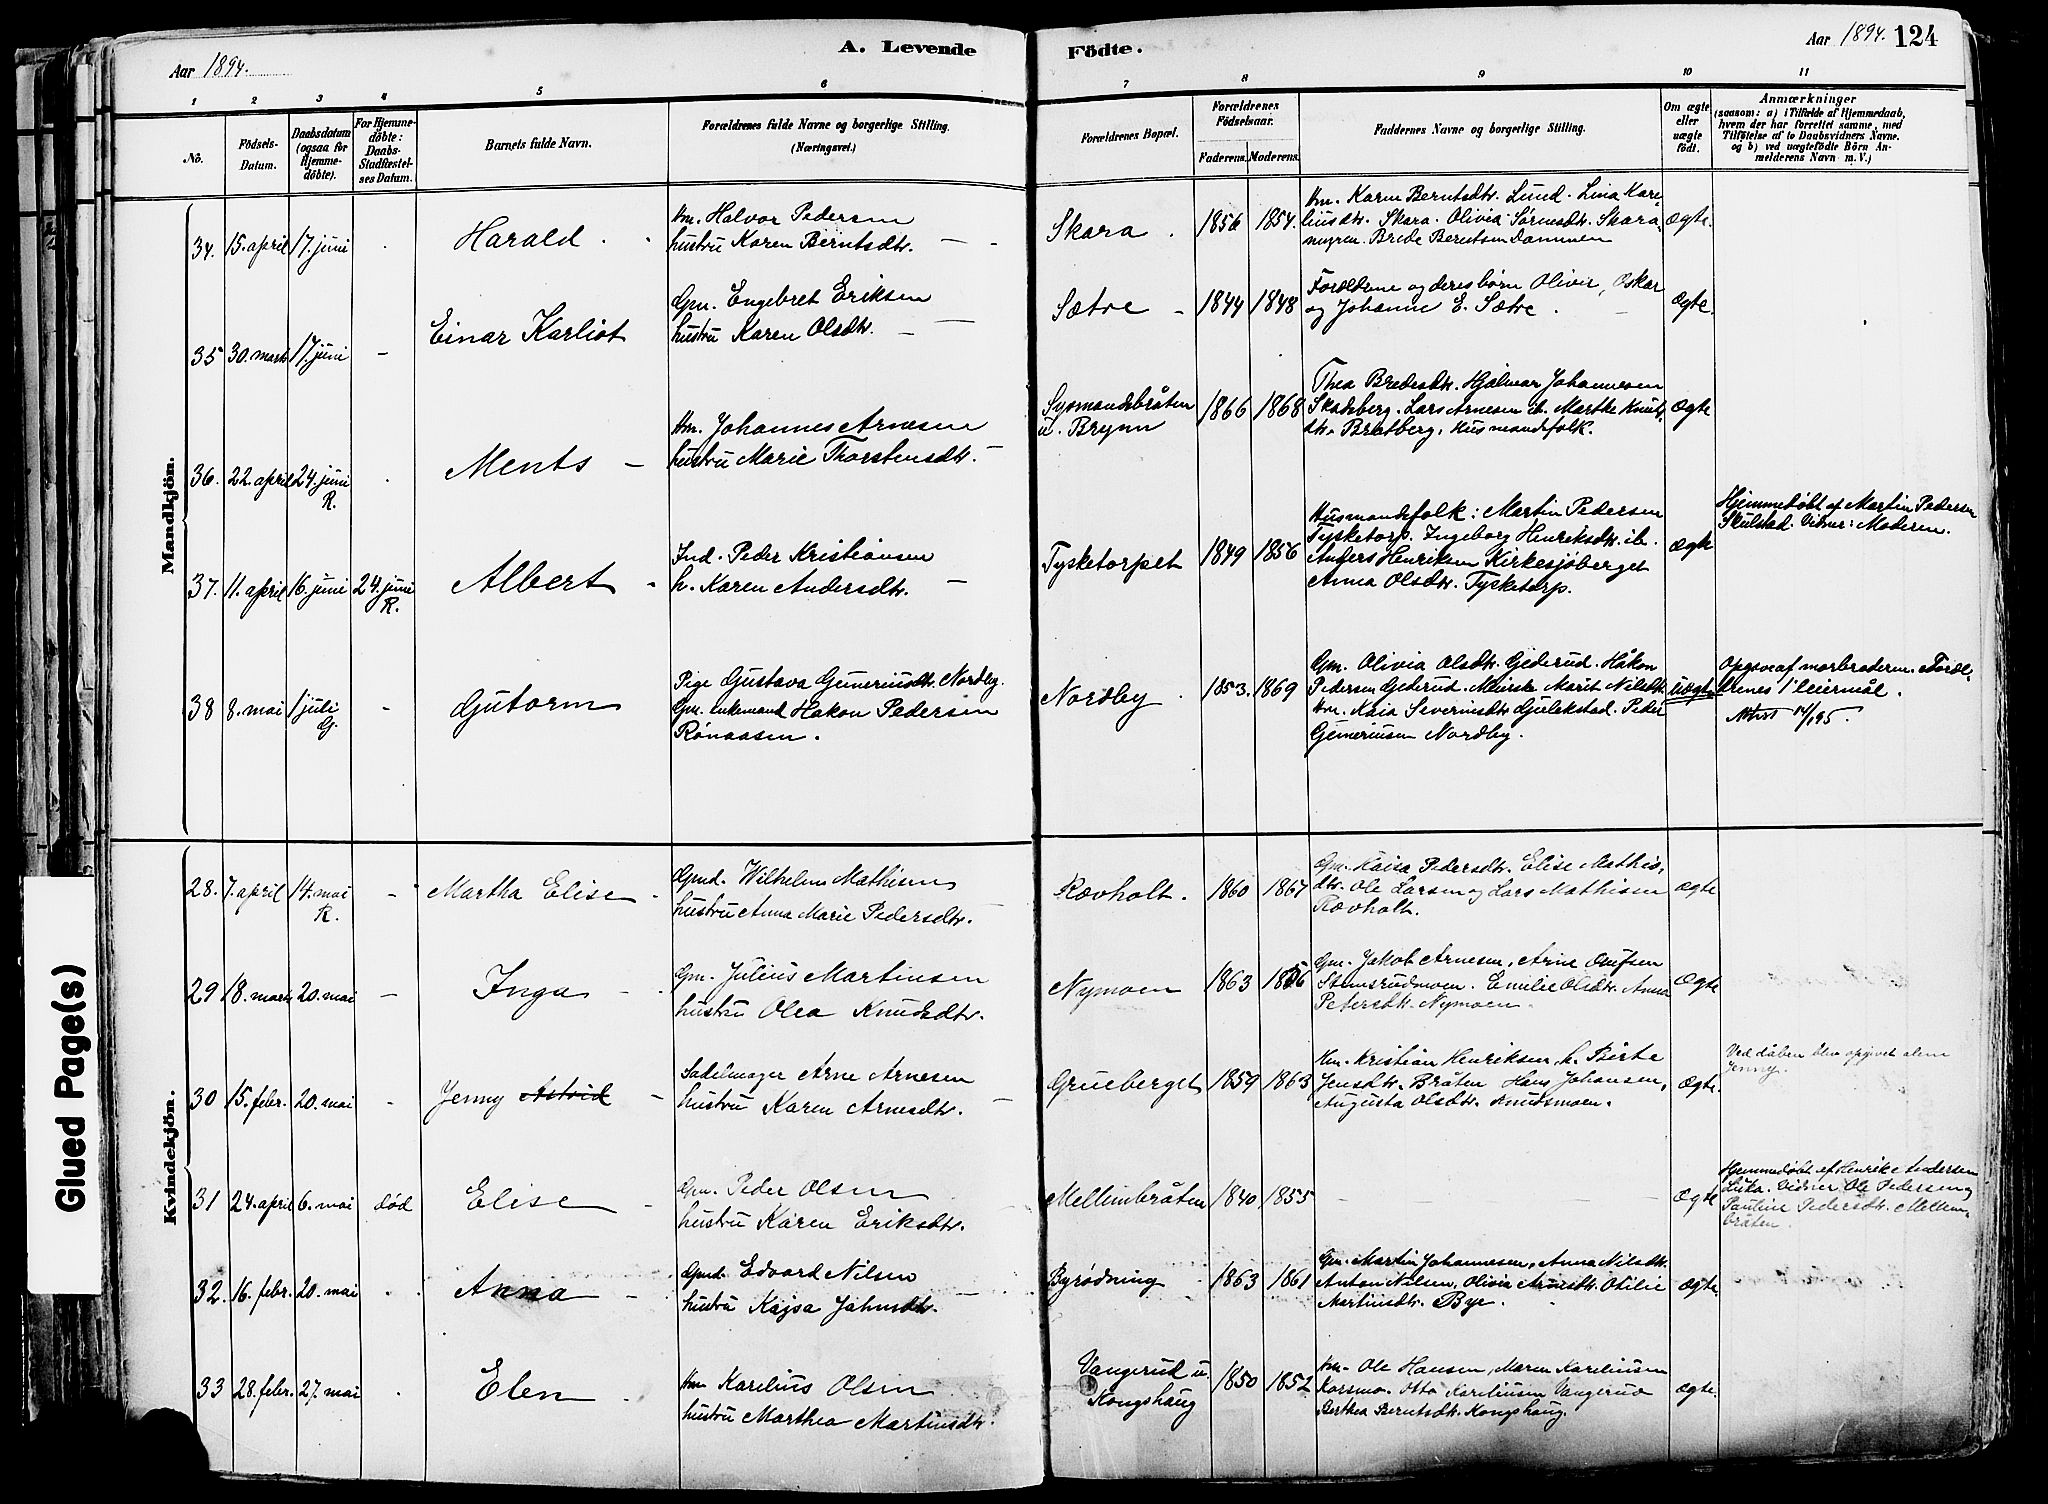 Aar 1894.
A. Levende
Födte.
Aar 1894.
124
1 2 3 4 5 6 7 8 9 10 11
No.
Födsels-Datum.
Daabsdatum (ogsaa for Hjemmedöbte).
For Hjemmedöbte: Daabs-Stadfæstelses Datum.
Barnets fulde Navn.
Forældrenes fulde Navne og borgerlige Stilling.
(Næringsvei.)
Forældrenes Bopæl.
Forældrenes Födselsaar.
Faderens. Moderens.
Faddernes Navne og borgerlige Stilling.
Om ægte eller uægte födt.
Anmærkninger
(saasom: a) i Tilfælde af Hjemmedaab, hvem der har forrettet samme, med Tilföielse af to Daabsvidners Navne. og b) ved uægtefödte Börn Anmelderens Navn m. V.)
Mandkjön.
34. 15. april 17. juni Harald.
Hm. Halvor Pedersen
hustru Karen Berntsdtr.
Skara. 1856 1854.
Hm. Karen Berntsdtr. Lund. Lina Kare-
liusdtr. Skara. Olivia Sørensdtr. Skara-
myren. Brede Berntsen Dammen
Ægte.
35 30. marts 17. juni - Einar Karliot
Gm. Engebret Eriksen
hustru Karen Olsdtr.
Sætre - 1844 1848
Forældrene og deres børn Oliver, Oskar
og Johanne E. Sætre.
Ægte.
36. 22. april 24. juni R. Ments
Hm. Johannes Arnesen
hustru Marie Thorstensdtr.
Sysmandsbråten
u. Brynn
1866 1868
Thea Bredesdtr. Hjalmar Johannesen
Skadsberg. Lars Arnesen ib. Marthe Knuts-
dtr. Bratberg, Husmandsfolk.
Ægte
37. 11. april 16. juni 24. juni R. Albert
Ind. Peder Kristiansen
h. Karen Andersdtr.
Tysketorpet 1849 1856
Husmandsfolk: Martin Pedersen
Tysketorp. Ingeborg Henriksdtr. ib.
Anders Henriksen Kirkesjøberget
Anna Olsdtr. Tysketorp.
Ægte
Hjemmedøbt af Martin Pedersen
Skulstad. Vidner: Moderen.
38 8. mai 1 juli G. - Gutorm
Pige Gustava Guneriusdtr. Nordby.
Gm. enkemand Hakon Pedersen
Rønaasen.
Nordby. 1853. 1869
Gm. Olivia Olsdtr. Gjederud. Håkon
Pedersen Gjederud. Marit Nilsdtr.
Hm. Kaia Severinsdtr. Peder
Guneriusen Nordby.
Uægte
Opgave af morbroderen. Foræl-
drenes 1' leiermål.
Kvindekjön.
28. 7. april 14. mai R. - Martha Elise
Gmd. Wilhelm Mathisen
hustru Anna Marie Pedersdtr.
Rævholt. 1860 1867
Gm. Kaisa Pedersdtr. Elise Mathis-
dtr. Ole Larsen og Lars Mathisen
Rævholt.
Ægte
29 18. marts 20. mai - Inga
Gm. Julius Martinsen
hustru Olea Knudsdtr.
Nymoen 1863 1856
Gm. Jakob Arnesen, Arne Olufsen
Stensrudmoen. Emilie Olsdtr. Anna
Petersdtr. Nymoen.
Ægte
30 15. febr. 20. mai - Jenny Astrid
Sadelmager Arne Arnesen
hustru Karen Arnesdtr.
Grueberget 1859 1863
Hm. Kristian Henriksen, h. Birte
Jensdtr. Bråten Hans Johansen,
Augusta Olsdtr. Knudsmoen.
Ægte.
Ved dåben blev opgivet alene
Jenny.
31 24. april 6. mai død Elise
Gm. Peder Olsen
hustru Karen Eriksdtr.
Mellembråten 1840 1855
Ægte
Hjemmedøbt af Henrike Andersen
Vidner Ole Pedersen og
Pauline Pedersdtr. Mellem-
bråten.
32. 16. febr. 20. mai Anna
Gmd. Edvard Nilsen
hustru Kajsa Jahnsdtr.
Byrødning 1863 1861
Gm. Martin Johannesen, Anna Nilsdtr.
Anton Nilsen, Olivia Arnesdtr. Otilie
Martinsdtr. Bye.
Ægte.
33 28. febr. 27. mai Elen
Hm. Karelius Olsen
hustru Marthea Martinsdtr.
Vangerud u.
Kongshaug
1850 1852
Hm. Ole Hansen, Maren Kareliusen
Korsmo. Otto Kareliusen Vangerud
Berthea Berntsdtr. Kongshaug.
Ægte.
Glued Page(s)